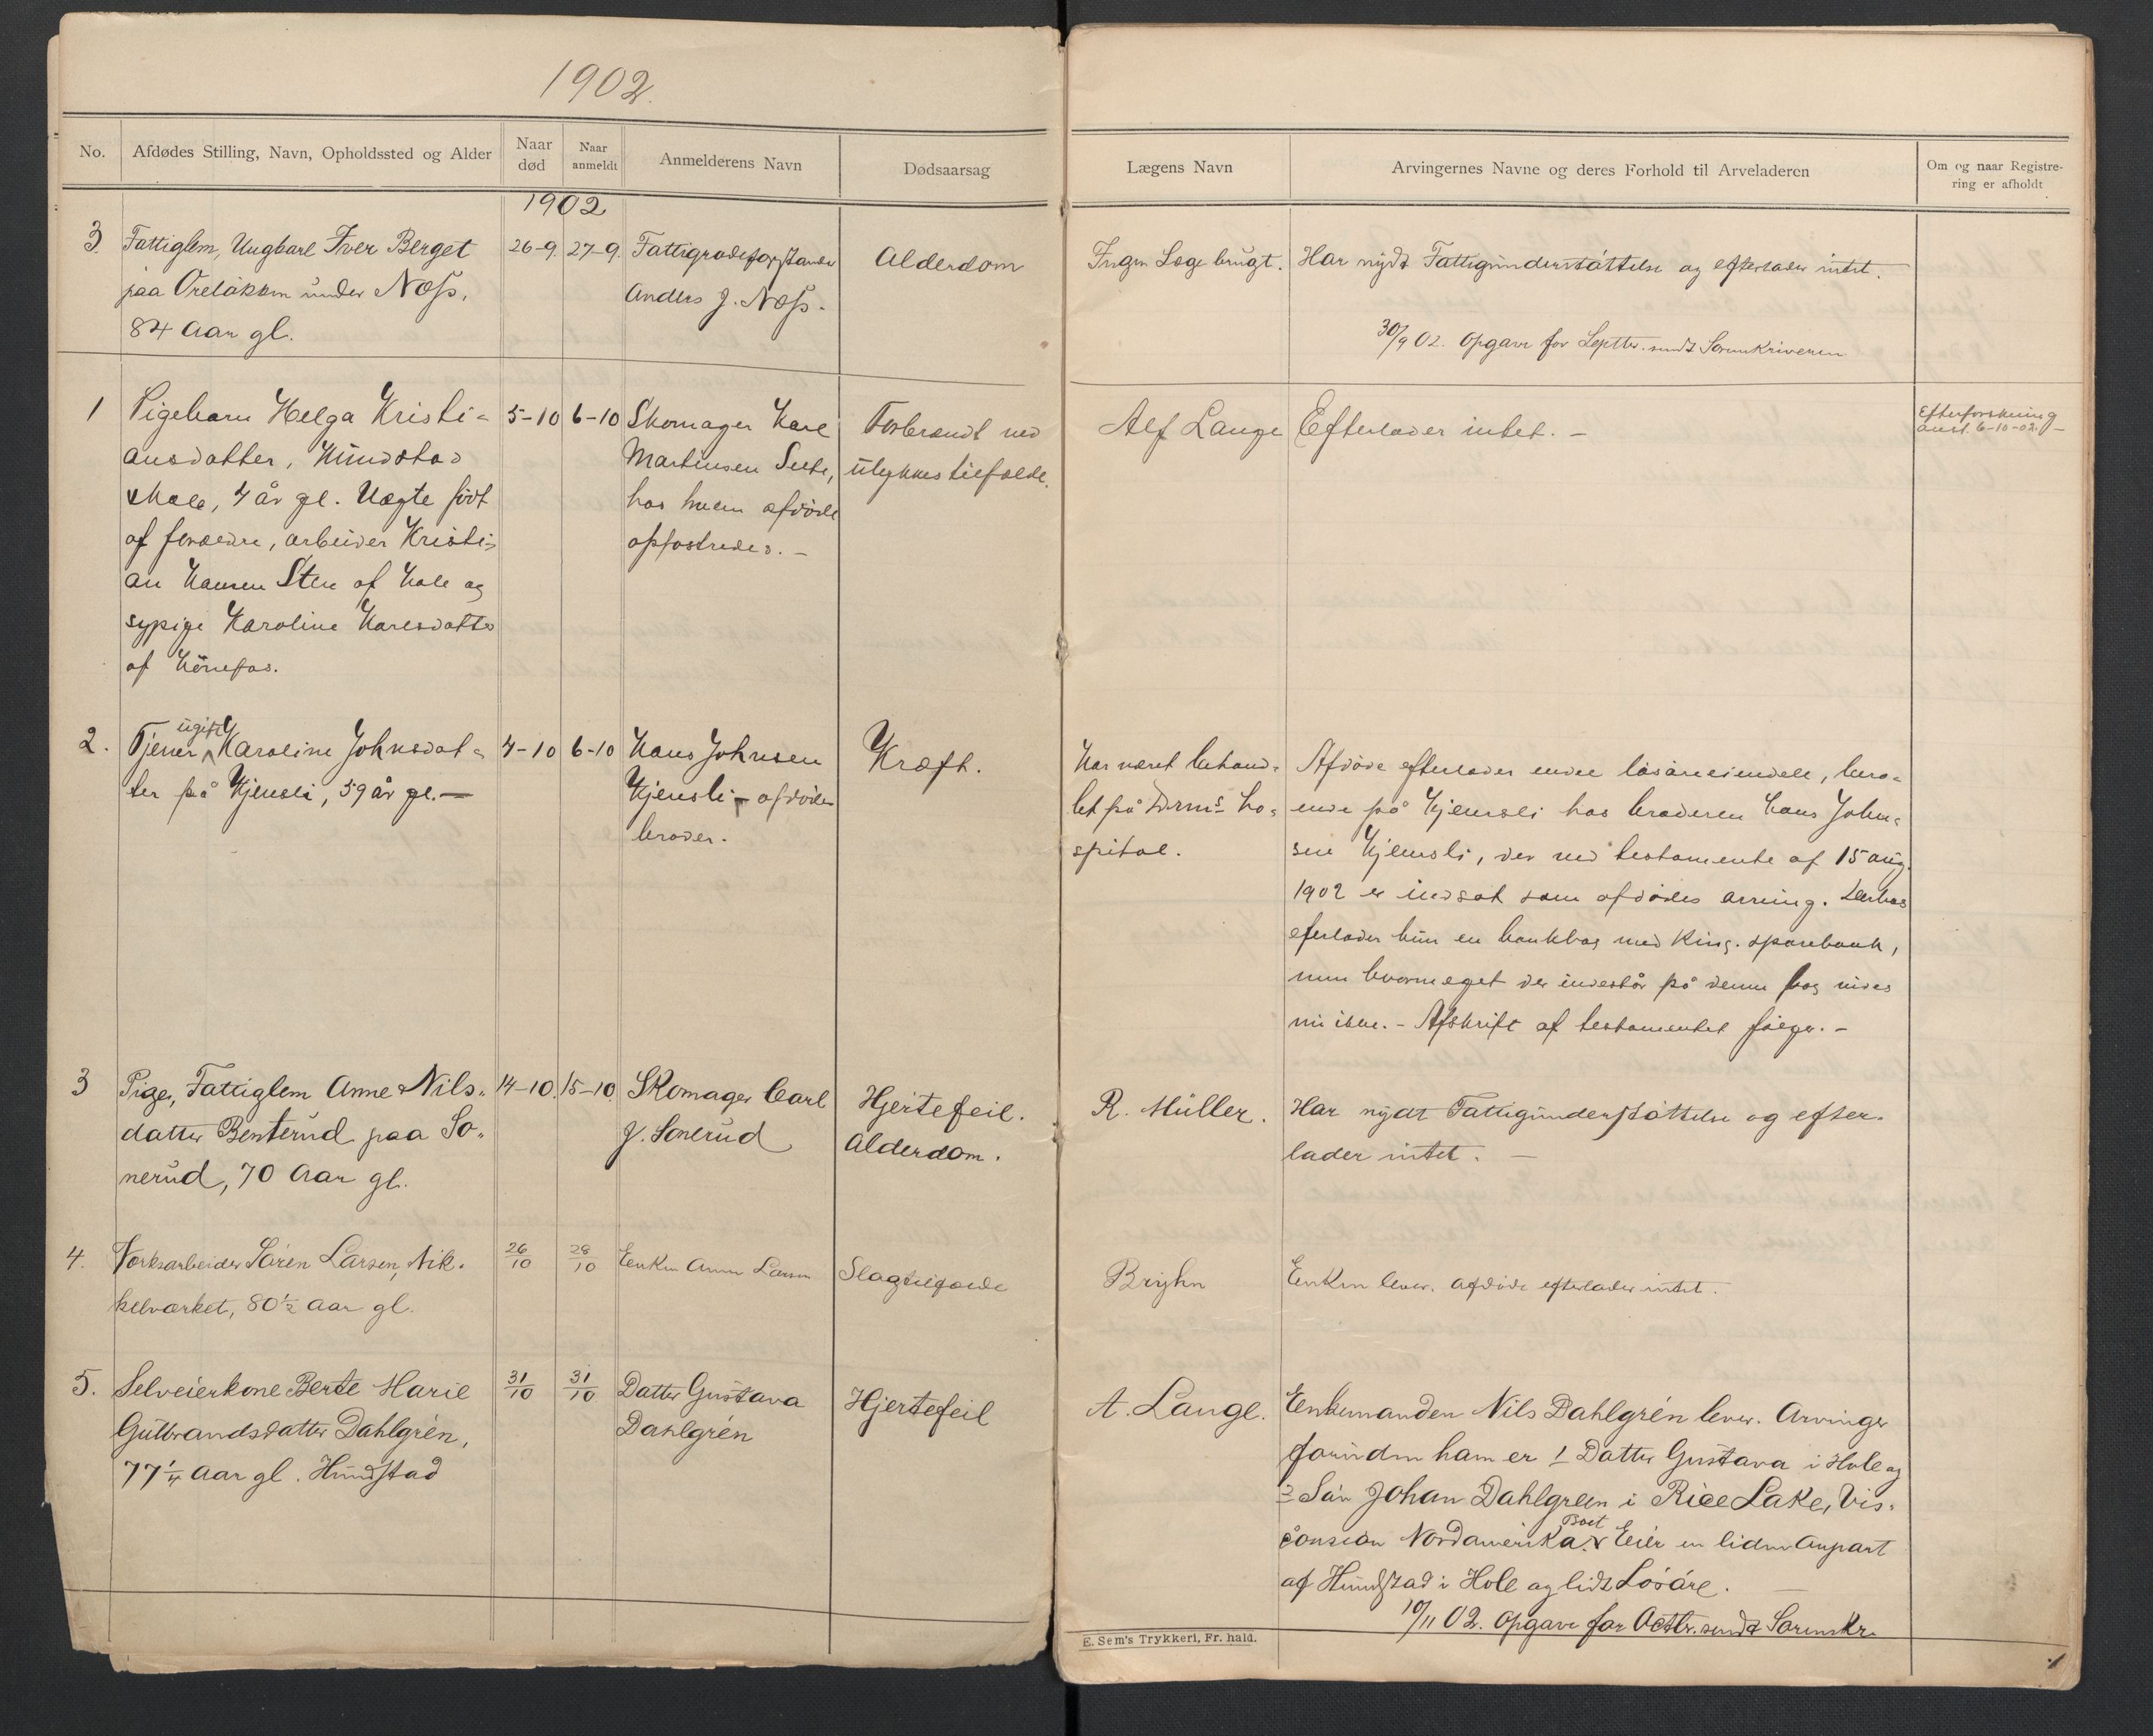 1902.
No.
Afdødes Stilling, Navn, Opholdssted og Alder
Naar død
Naar anmeldt
Anmelderens Navn
Dødsaarsag
Lægens Navn
Arvingernes Navne og deres Forhold til Arveladeren
Om og naar Registrering er afholdt
1902
3
Fattiglem, Ungkarl Iver Berget
paa Oreløkken under Næss,
84 Aar gl.
26-9.
27-9.
Fattigradsforstander
Anders J. Næss.
Alderdom
Ingen Læge brugt.
Har nydt Fattigunderstøttelse og efterlader intet.
30/9 02. Opgave for Septbr. sendt Sorenskriveren
1
Pigebarn Helga Kristi-
ansdatter, Hundstad
skole, 4 år gl. Uægte født
af forældre, arbeider Kristi-
an Hansen Sten af Hole og
sypige Karoline Karlsdatter
af Hønefos.
5-10
6-10
Skomager Karl
Martinsen
hos hvem afdøde
opfostredes. -
Forbrændt ved
ulykkestilfælde.
Alf Lange
Efterlader intet. -
Efterforskning
anst. 6-10-02. -
2.
ugift
Tjener Karoline Johnsdat-
ter på Hjensli, 59 år gl. —
4-10
6-10
Hans Johnsen
Hjensli - afdødes
broder.
Kræft.
Har været behand-
let på Drms ho-
spital.
Afdøde efterlader endel løsøreeiendele, bero-
ende på Hjensli hos broderen Hans John-
sen Hjensli, der ved testamente af 15 aug.
1902 er indsat som afdødes arving. Derhos
efterlader hun en bankbog med Ring. sparebank,
men hvormeget der indestår på denne bog vides
nu ikke. - Afskrift af testamentet følger. -
3
Pige, Fattiglem Anne Nils-
datter Benterud paa So-
nerud, 70 Aar gl.
14-10.
15-10.
Skomager Carl
J. Sonerud
Hjertefeil.
Alderdom.
R. Müller.
Har nydt Fattigunderstøttelse og efter-
lader intet. —
4.
Værksarbeider Søren Larsen, Nik-
kelværket, 80 1/2 Aar gl.
26/10
28/10
Enken Anne Larsen
Slagtilfælde
Bryhn
Enken lever. Afdøde efterlader intet.
5.
Selveierkone Berte Marie
Gulbrandsdatter Dahlgrén,
77 1/4 Aar gl. Hundstad
31/10
31/10
Datter Gustava
Dahlgrén
Hjertefeil
A. Lange.
Enkemanden Nils Dahlgrén lever. Arvinger
foruden ham er 1 Datter Gustava i Hole og
2 Søn Johan Dahlgreen i Rice Lake, Vis-
consion Nordamerika. Boet Eier en liden Anpart
af Hundstad i Hole og lidt Løsøre. —
10/11 02. Opgave for Octbr. sendt Sorenskr.
E. Sem's Trykkeri, Fr. hald.